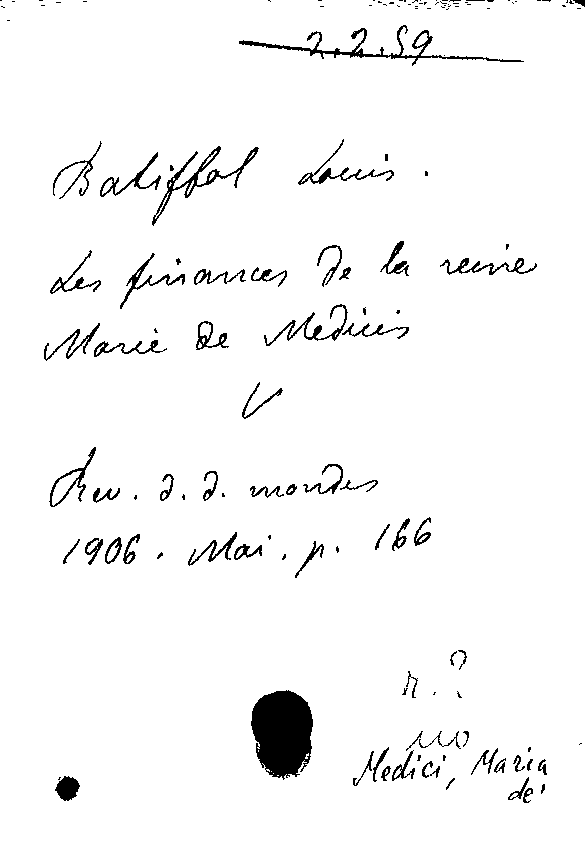 2.2.59
Batiffol Louis.
Les finances de la reine
Marie de Medicis
V
Rev. d. d. mondes
1906. Mai. p. 166
r.?
no
Medici, Maria
de'